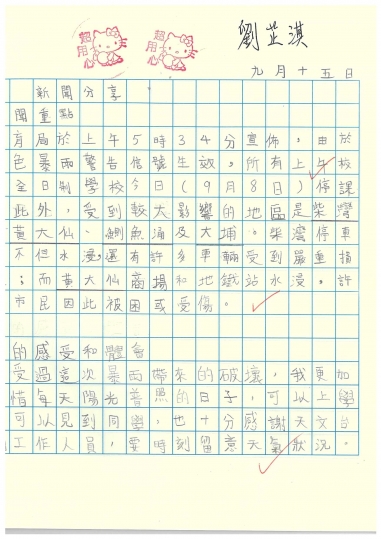 超用心
超用心
劉芷淇
九月十五日
新聞分享
聞重點
育局於上午5時34分宣佈，由於
色暴雨警告信號生效，所有上午校
全日制學校今日(9月8日)停課
此外，受到較大影響的地區是柴灣
黃大仙、鰂魚涌及大埔。柴灣停車
不但水浸，還有許多車輛受到嚴重損
；而黃大仙商場和地鐵站水浸，許
市民因此被困或受傷。
的感受和體會
受過這次暴雨帶來的破壞，我更加
惜每天陽光普照的日子，可以上學
可以見到同學，也十分感謝天文台
工作人員，要時刻留意天氣狀況。